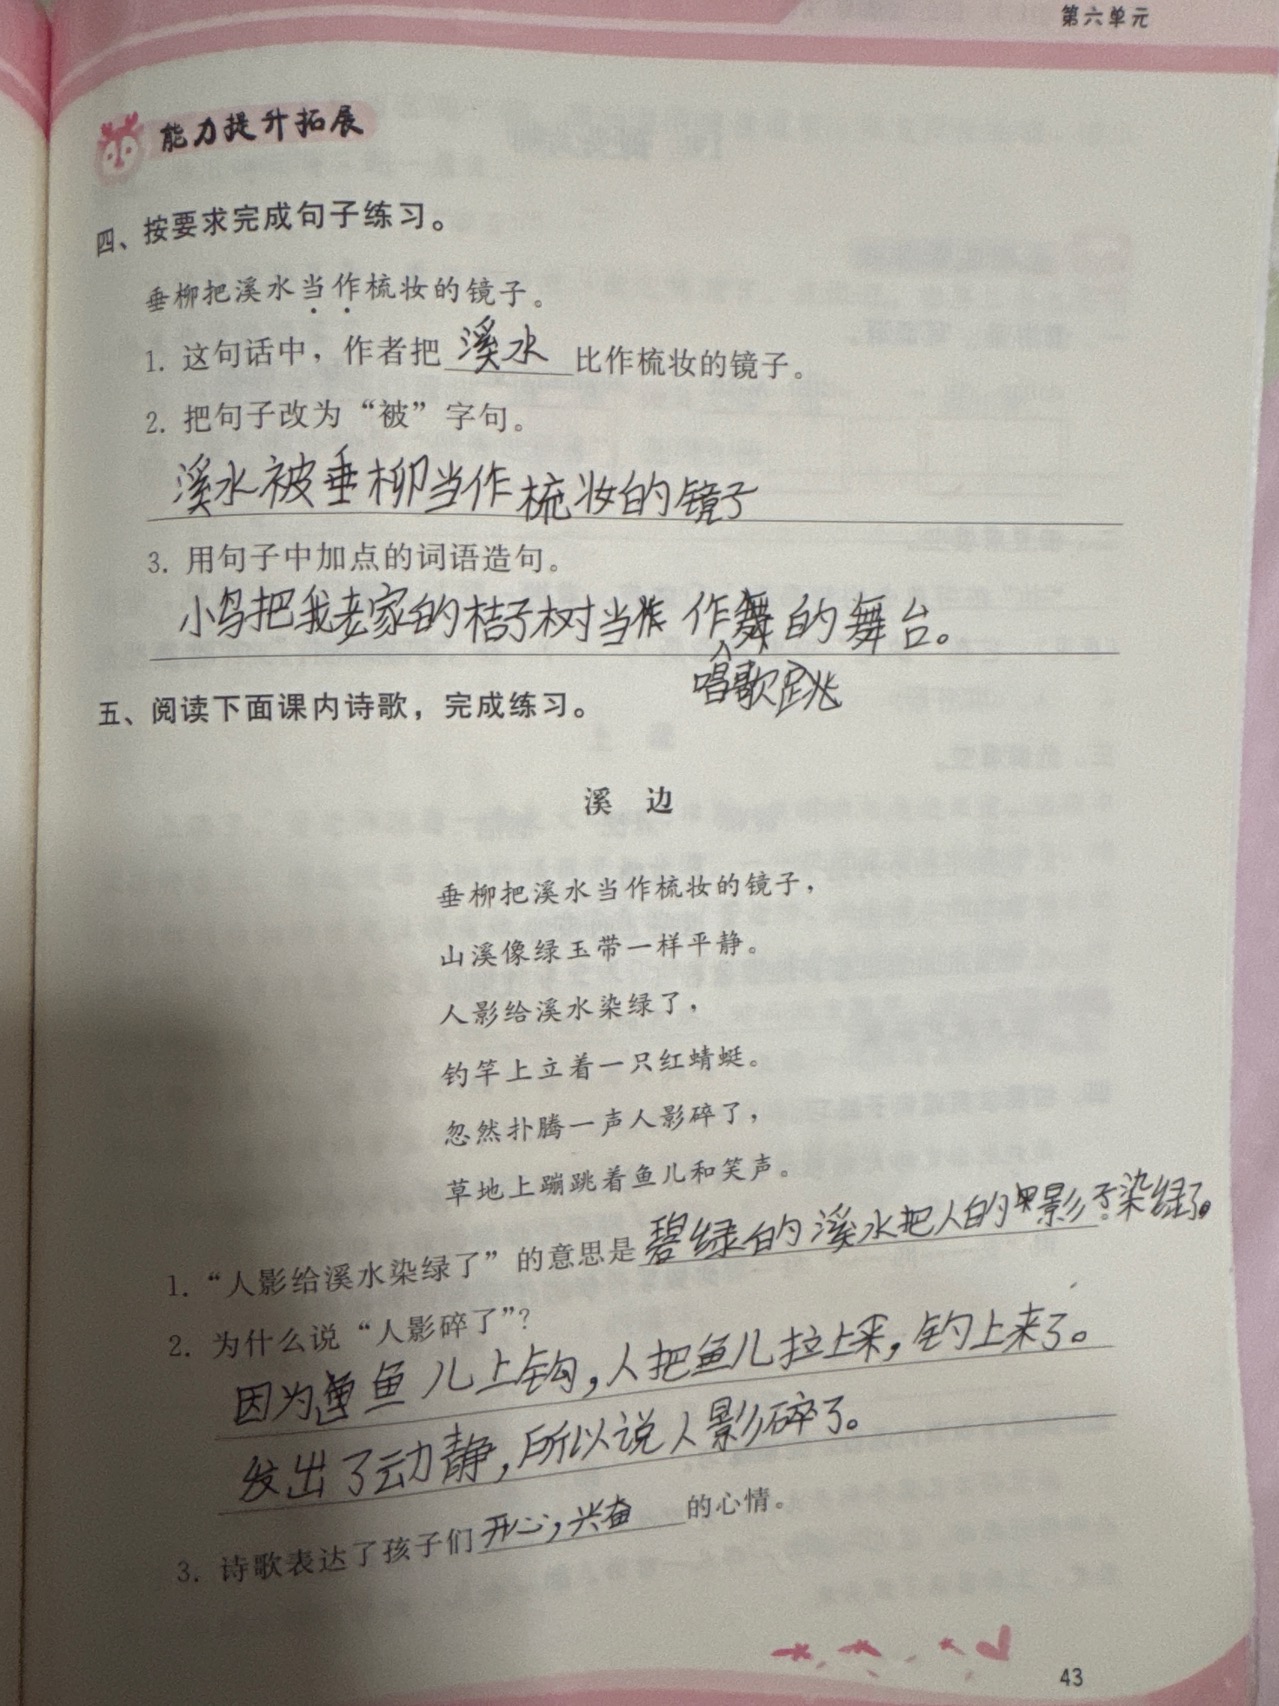 第六单元
能力提升拓展
四、按要求完成句子练习。
垂柳把溪水当作梳妆的镜子。
1. 这句话中，作者把 溪水 比作梳妆的镜子。
2. 把句子改为“被”字句。
溪水被垂柳当作梳妆的镜子
3. 用句子中加点的词语造句。
小鸟把我老家的桔子树当作舞的舞台。
唱歌跳
五、阅读下面课内诗歌，完成练习。
溪 边
垂柳把溪水当作梳妆的镜子，
山溪像绿玉带一样平静。
人影给溪水染绿了，
钓竿上立着一只红蜻蜓。
忽然扑腾一声人影碎了，
草地上蹦跳着鱼儿和笑声。
1. “人影给溪水染绿了”的意思是碧绿的溪水把人的影子染绿了。
2. 为什么说“人影碎了”？
因为鱼儿上钩，人把鱼儿拉上来，钓上来了。
发出了动静，所以说人影碎了。
3. 诗歌表达了孩子们开心，兴奋的心情。
43